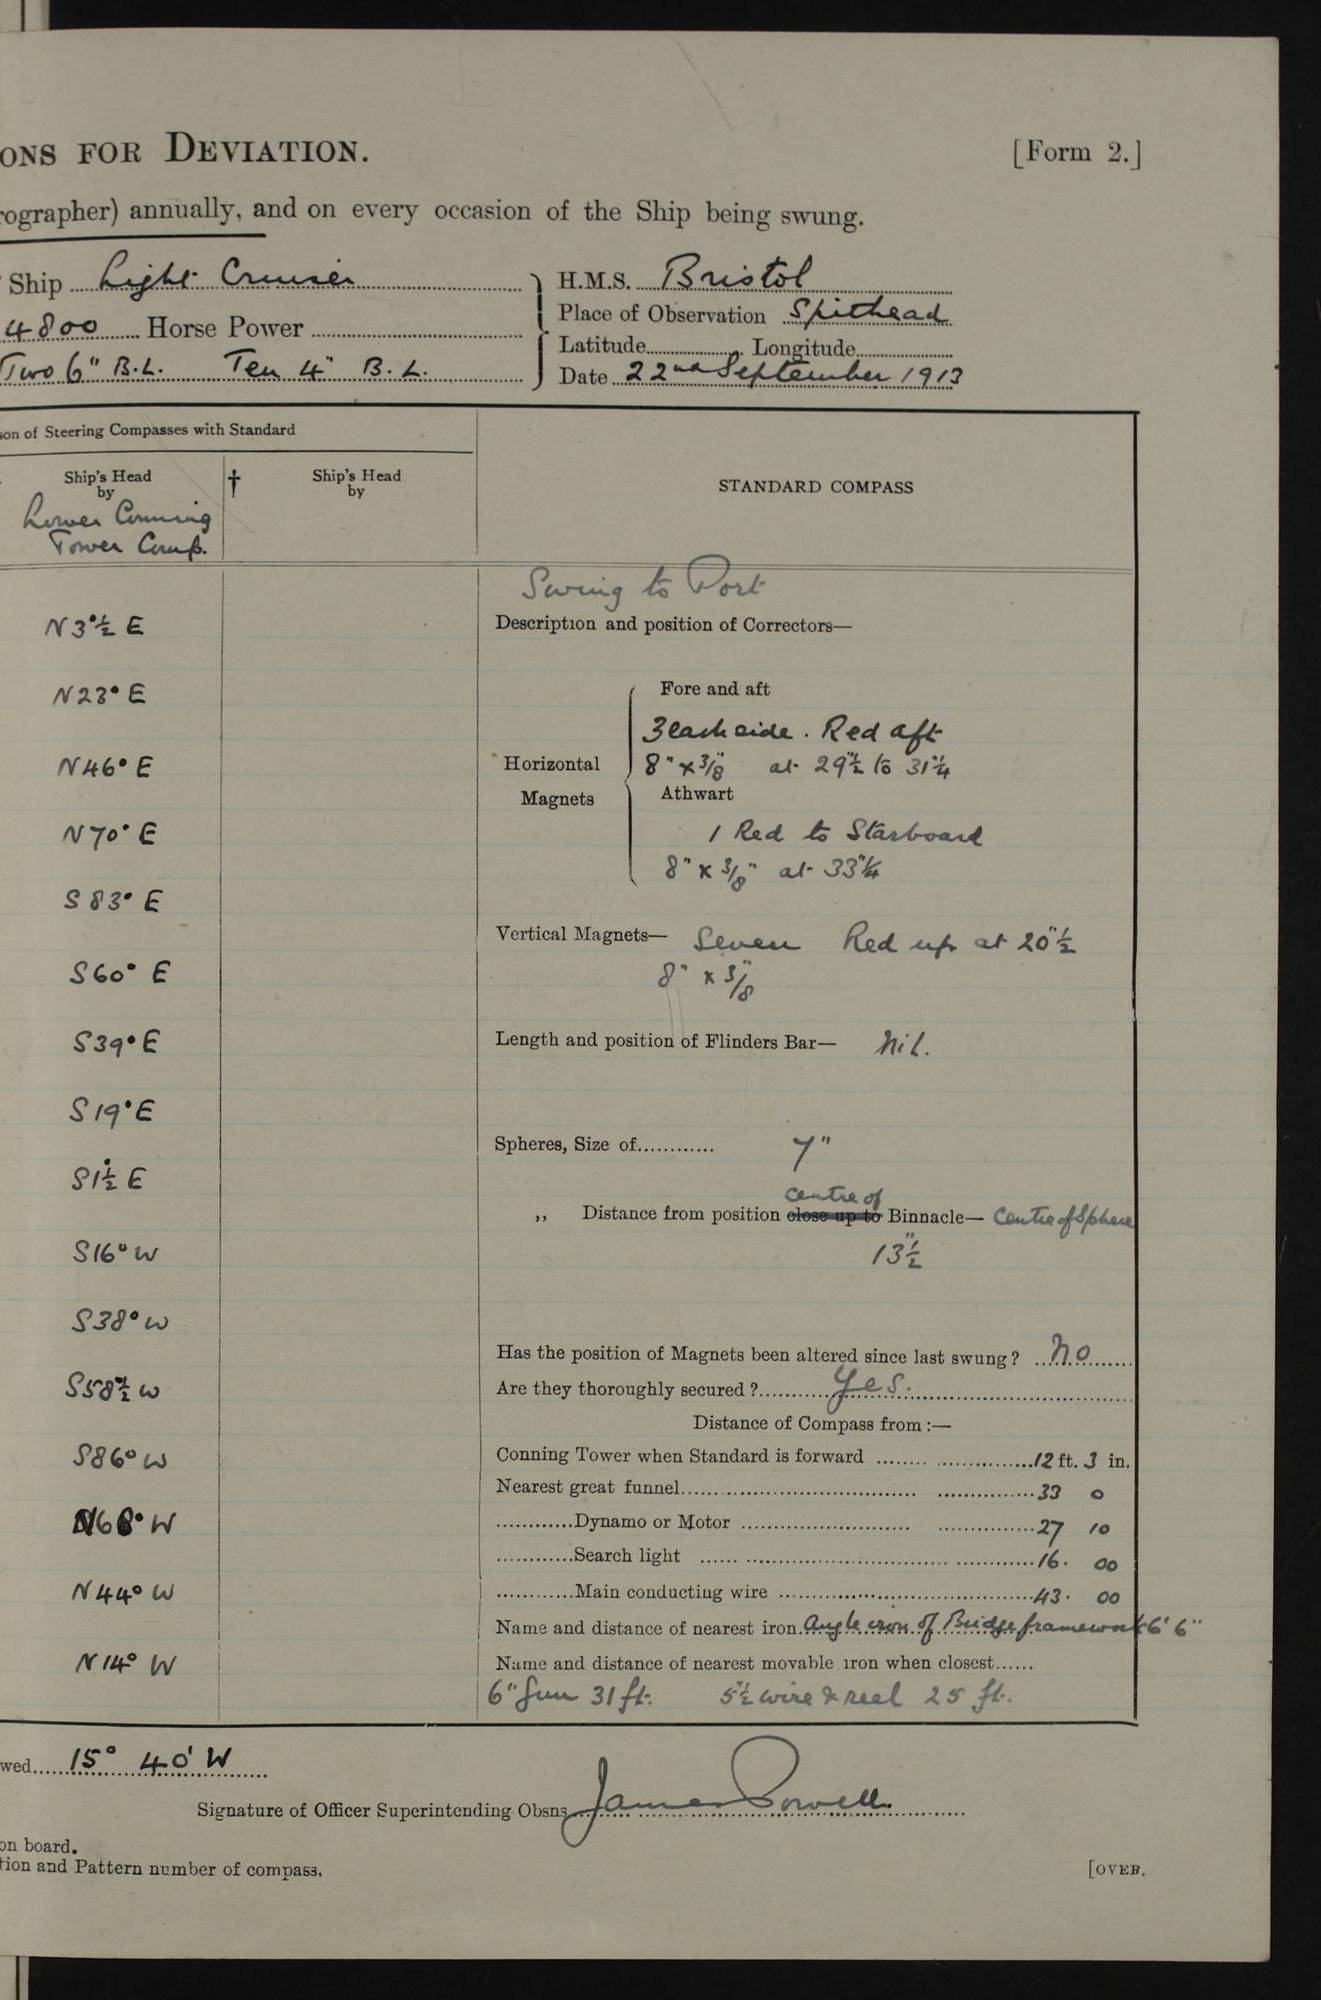 ONS FOR DEVIATION.
[Form 2.]
rographer) annually, and on every occasion of the Ship being swung.
Ship Light Cruiser
4800 Horse Power
Two 6" B.L. Ten 4" B.L.
H.M.S. Bristol
Place of Observation Spithead
Latitude Longitude
Date 22nd September 1913
son of Steering Compasses with Standard
Ship's Head
by
Lower Conning
Tower Comp.
†
Ship's Head
by
STANDARD COMPASS
N3°½ E
N23° E
N46° E
N70° E
S83° E
S60° E
S39° E
S19° E
S1°½ E
S16° W
S38° W
S58°½ W
S86° W
N68° W
N44° W
N14° W
Swing to Port
Description and position of Correctors—
Horizontal
Magnets
Fore and aft
3 each side. Red aft
8" x 3/8" at 29"½ to 31"¼
Athwart
1 Red to Starboard
8" x 3/8" at 33"¼
Vertical Magnets— Seven Red up at 20"½
8" x 3/8"
Length and position of Flinders Bar— Nil.
Spheres, Size of............ 7"
centre of
,, Distance from position close up to Binnacle— Centre of Sphere
13"½
Has the position of Magnets been altered since last swung? No
Are they thoroughly secured? Yes.
Distance of Compass from:—
Conning Tower when Standard is forward 12 ft. 3 in.
Nearest great funnel 33 0
Dynamo or Motor 27 10
Search light 16. 00
Main conducting wire 43. 00
Name and distance of nearest iron. Angle iron of Bridge framework 6' 6"
Name and distance of nearest movable iron when closest......
6" Gun 31 ft. 5"½ wire & reel 25 ft.
wed 15° 40' W
Signature of Officer Superintending Obsns James Powell
on board.
tion and Pattern number of compass.
[OVER.